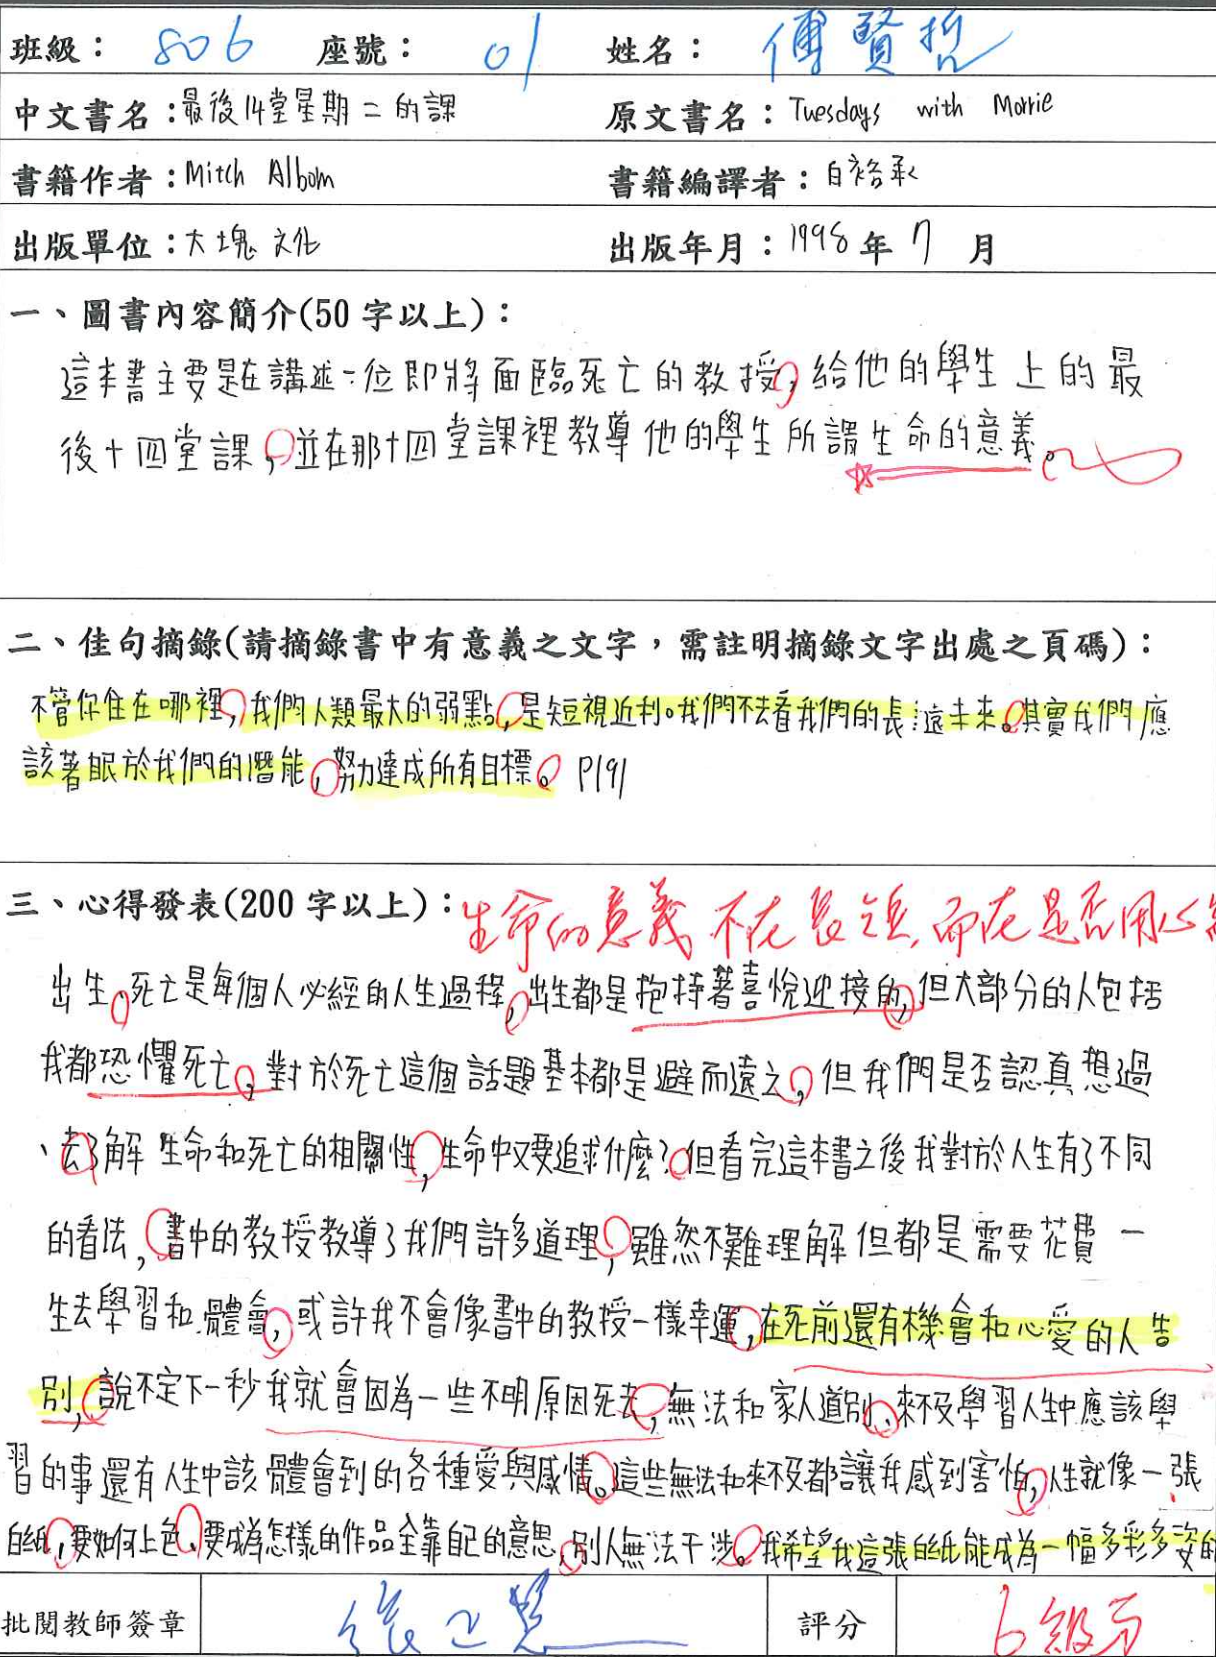 班級： 806 座號： 01 姓名： 傅賢哲
中文書名：最後14堂星期二的課 原文書名：Tuesdays with Morrie
書籍作者：Mitch Albom 書籍編譯者：白裕承
出版單位：大塊文化 出版年月：1998年7月
一、圖書內容簡介(50字以上)：
這本書主要是在講述一位即將面臨死亡的教授，給他的學生上的最
後十四堂課，並在那十四堂課裡教導他的學生所謂生命的意義。
二、佳句摘錄(請摘錄書中有意義之文字，需註明摘錄文字出處之頁碼)：
不管你住在哪裡，我們人類最大的弱點，是短視近利。我們不去看我們的長遠未來。其實我們應
該著眼於我們的潛能，努力達成所有目標。P191
三、心得發表(200字以上)：生命的意義不在長短，而在是否用心
出生、死亡是每個人必經的人生過程，出生都是抱持著喜悅迎接的，但大部分的人包括
我都恐懼死亡，對於死亡這個話題基本都是避而遠之，但我們是否認真想過
、去了解生命和死亡的相關性，生命中又要追求什麼？但看完這本書之後我對於人生有了不同
的看法，書中的教授教導了我們許多道理，雖然不難理解但都是需要花費一
生去學習和體會，或許我不會像書中的教授一樣幸運，在死前還有機會和心愛的人告
別，說不定下一秒我就會因為一些不明原因死去，無法和家人道別、來不及學習人生中應該學
習的事還有人生中該體會到的各種愛與感情。這些無法和來不及都讓我感到害怕，人生就像一張
白紙，要如何上色、要成為怎樣的作品全靠自己的意思，別人無法干涉。我希望我這張白紙能成為一幅多彩多姿的
批閱教師簽章 評分 6級分